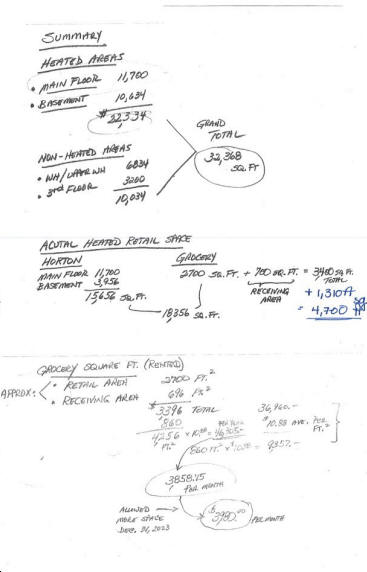 SUMMARY
HEATED AREAS
• MAIN FLOOR 11,700
• BASEMENT 10,634
22,334
GRAND
TOTAL
32,368
SQ. FT
NON-HEATED AREAS
• WH/UPPER WH 6834
• 3RD FLOOR 3200
10,034
ACUTAL HEATED RETAIL SPACE
HORTON GROCERY
MAIN FLOOR 11,700 2700 SQ. FT. + 700 SQ. FT. = 3400 SQ. FT.
BASEMENT 3,956 RECEIVING TOTAL
15,656 SQ. FT. AREA + 1,310
18,356 SQ. FT. = 4,700
GROCERY SQUARE FT. (RENTED)
APPROX: • RETAIL AREA 2700 FT.²
• RECEIVING AREA 696 FT.²
3396 TOTAL 36,960.-
860 $10.88 AVE. PER FT.²
4256 FT.² × 10.88 = 46,305.- PER YEAR
860 FT. × $10.88 = 9357.-
3858.75
PER MONTH
ALLOWED
MORE SPACE
DEC. 31, 2023
$3980.00 PER MONTH